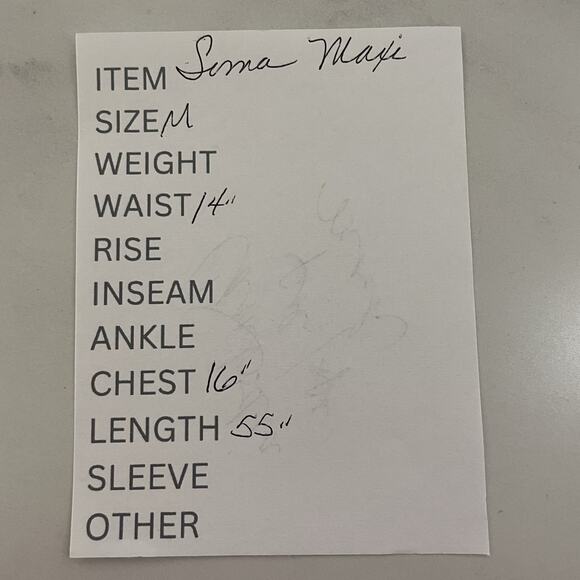 ITEM Soma Maxi
SIZE M
WEIGHT
WAIST 14"
RISE
INSEAM
ANKLE
CHEST 16"
LENGTH 55"
SLEEVE
OTHER